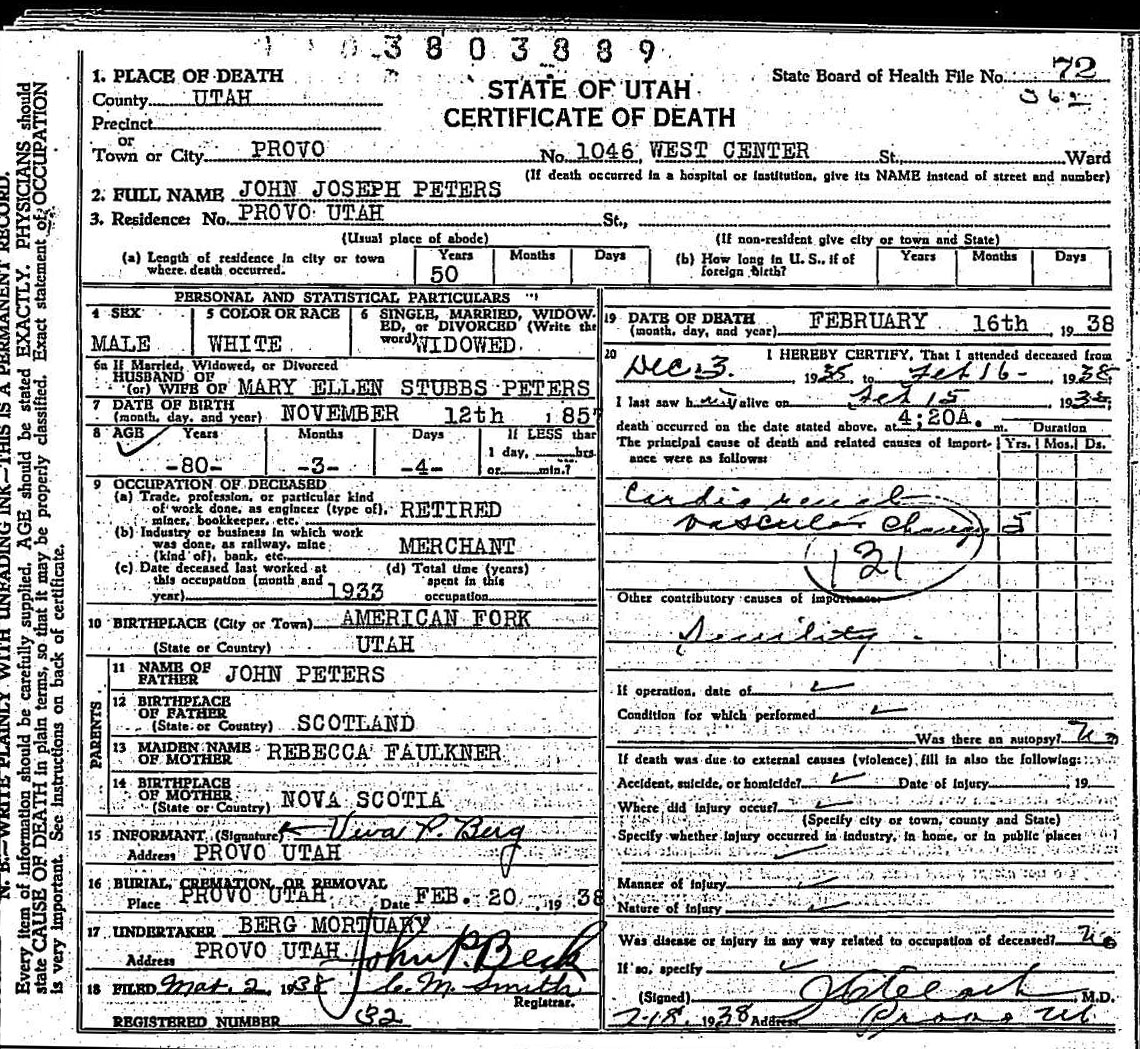 0 3 8 0 3 8 8 9
1. PLACE OF DEATH
County UTAH
Precinct
or
Town or City PROVO
STATE OF UTAH
CERTIFICATE OF DEATH
State Board of Health File No. 72
No. 1046 WEST CENTER St., Ward
(If death occurred in a hospital or institution, give its NAME instead of street and number)
2. FULL NAME JOHN JOSEPH PETERS
3. Residence: No. PROVO UTAH St.,
(Usual place of abode) (If non-resident give city or town and State)
(a) Length of residence in city or town where death occurred. Years 50 Months Days
(b) How long in U. S., if of foreign birth? Years Months Days
PERSONAL AND STATISTICAL PARTICULARS
4 SEX MALE
5 COLOR OR RACE WHITE
6 SINGLE, MARRIED, WIDOWED, or DIVORCED (Write the word) WIDOWED
6a If Married, Widowed, or Divorced
HUSBAND OF
(or) WIFE OF MARY ELLEN STUBBS PETERS
7 DATE OF BIRTH
(month, day, and year) NOVEMBER 12th 1857
8 AGE Years Months Days If LESS than
1 day, hrs.
-80- -3- -4- or min.?
9 OCCUPATION OF DECEASED
(a) Trade, profession, or particular kind
of work done, as engineer (type of), RETIRED
miner, bookkeeper, etc.
(b) Industry or business in which work
was done, as railway, mine MERCHANT
(kind of), bank, etc.
(c) Date deceased last worked at
this occupation (month and
year) 1933
(d) Total time (years)
spent in this
occupation
10 BIRTHPLACE (City or Town) AMERICAN FORK
(State or Country) UTAH
PARENTS
11 NAME OF
FATHER JOHN PETERS
12 BIRTHPLACE
OF FATHER
(State or Country) SCOTLAND
13 MAIDEN NAME
OF MOTHER REBECCA FAULKNER
14 BIRTHPLACE
OF MOTHER
(State or Country) NOVA SCOTIA
15 INFORMANT (Signature) Viva P. Berg
Address PROVO UTAH
16 BURIAL, CREMATION, OR REMOVAL
Place PROVO UTAH Date FEB. 20 1938
17 UNDERTAKER BERG MORTUARY
Address PROVO UTAH John P. Beck
18 FILED Mar. 2, 1938 C. M. Smith
Registrar.
REGISTERED NUMBER 32
19 DATE OF DEATH
(month, day, and year) FEBRUARY 16th 1938
20 I HEREBY CERTIFY, That I attended deceased from
Dec 3. 1935 to Feb 16- 1938
I last saw him alive on Feb 15 1938
death occurred on the date stated above, at 4;20A. m. Duration
The principal cause of death and related causes of importance were as follows: Yrs. Mos. Ds.
Cardio renal
vascular change 5
131
Other contributory causes of importance:
Senility.
If operation, date of
Condition for which performed
Was there an autopsy? No
If death was due to external causes (violence) fill in also the following:
Accident, suicide, or homicide? Date of injury 19
Where did injury occur?
(Specify city or town, county and State)
Specify whether injury occurred in industry, in home, or in public place:
Manner of injury
Nature of injury
Was disease or injury in any way related to occupation of deceased? No
If so, specify
(Signed) M.D.
2-18. 1938 Address Provo Ut.
N. B.—WRITE PLAINLY WITH UNFADING INK—THIS IS A PERMANENT RECORD.
Every item of information should be carefully supplied. AGE should be stated EXACTLY. PHYSICIANS should
state CAUSE OF DEATH in plain terms, so that it may be properly classified. Exact statement of OCCUPATION
is very important. See instructions on back of certificate.